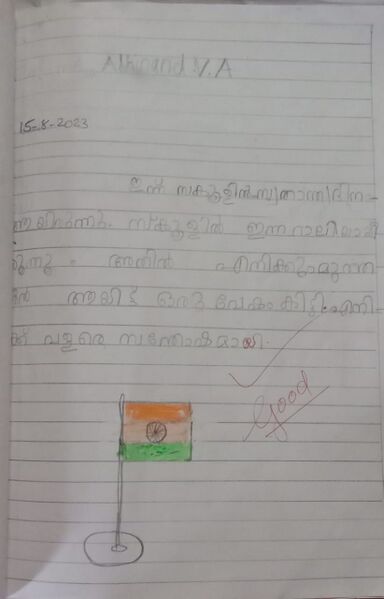 Abhinand V.A
15-8-2023
ഇന്ന് സ്കൂളിൽ സ്വാതന്ത്ര്യദിന-
ആയിരുന്നു. സ്കൂളിൽ ഇന്ന് റാലിയുണ്ടായി
രുന്നു. അതിൽ എനിക്കും
ആയിട്ട് ഒരു വേഷം കിട്ടി. എനി-
ക്ക് വളരെ സന്തോഷമായി.
Good